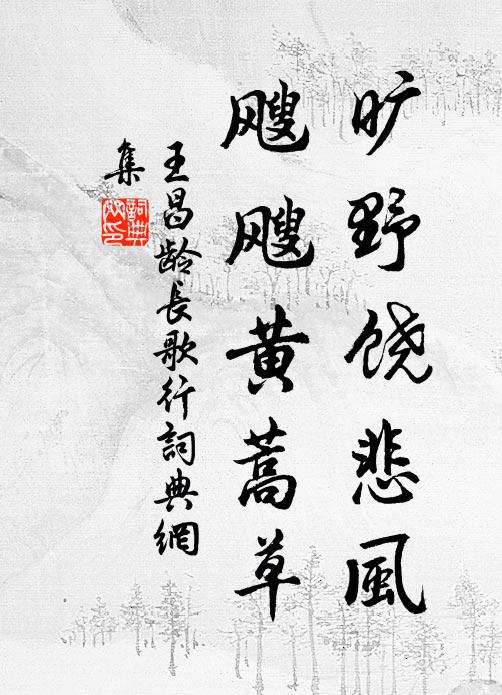 旷野饶悲風
飕飕黄蒿草
王昌龄長歌行詞典網
集
詞典网印